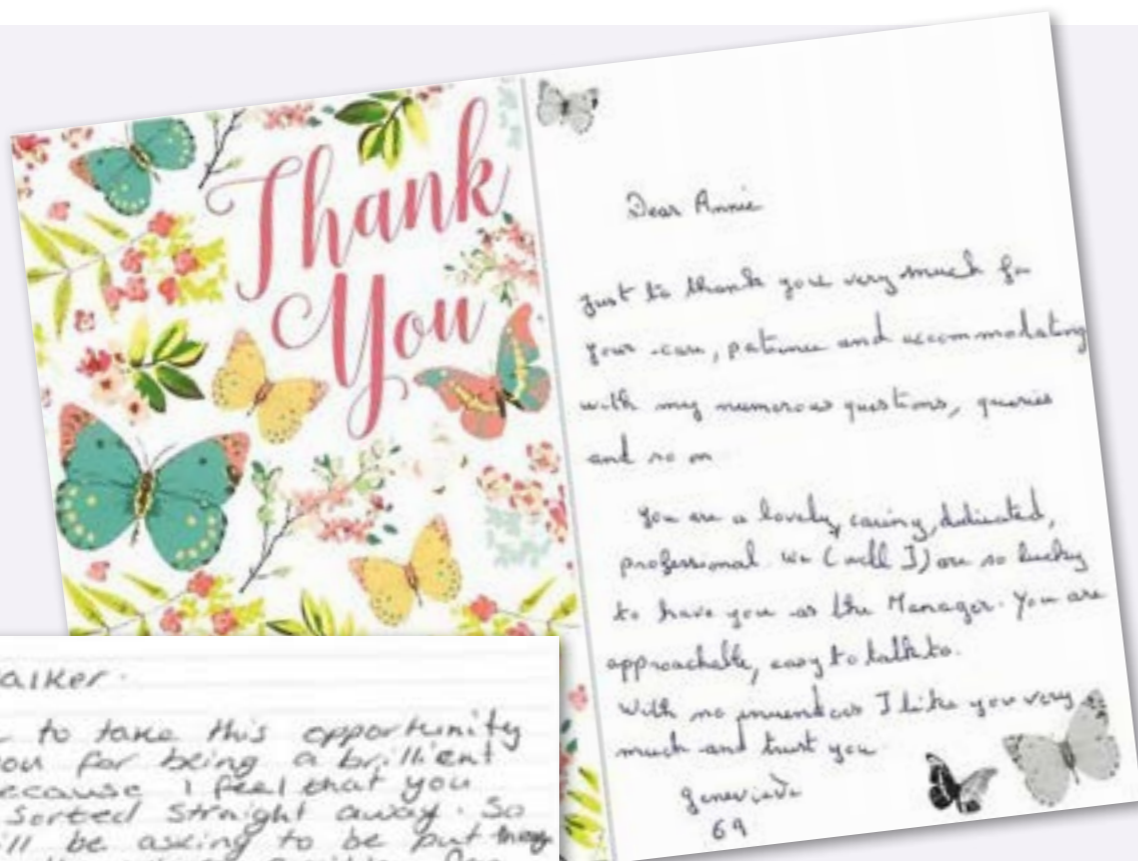 Thank
You
Dear Annie
Just to thank you very much for
your care, patience and accommodating
with my numerous questions, queries
and so on
You are a lovely, caring, dedicated,
professional. We (well I) are so lucky
to have you as the Manager. You are
approachable, easy to talk to.
With no innuendos I like you very
much and trust you
Genevieve
69
alker.
to take this opportunity
ou for being a brillient
ecause I feel that you
sorted straight away. So
ill be asking to be put